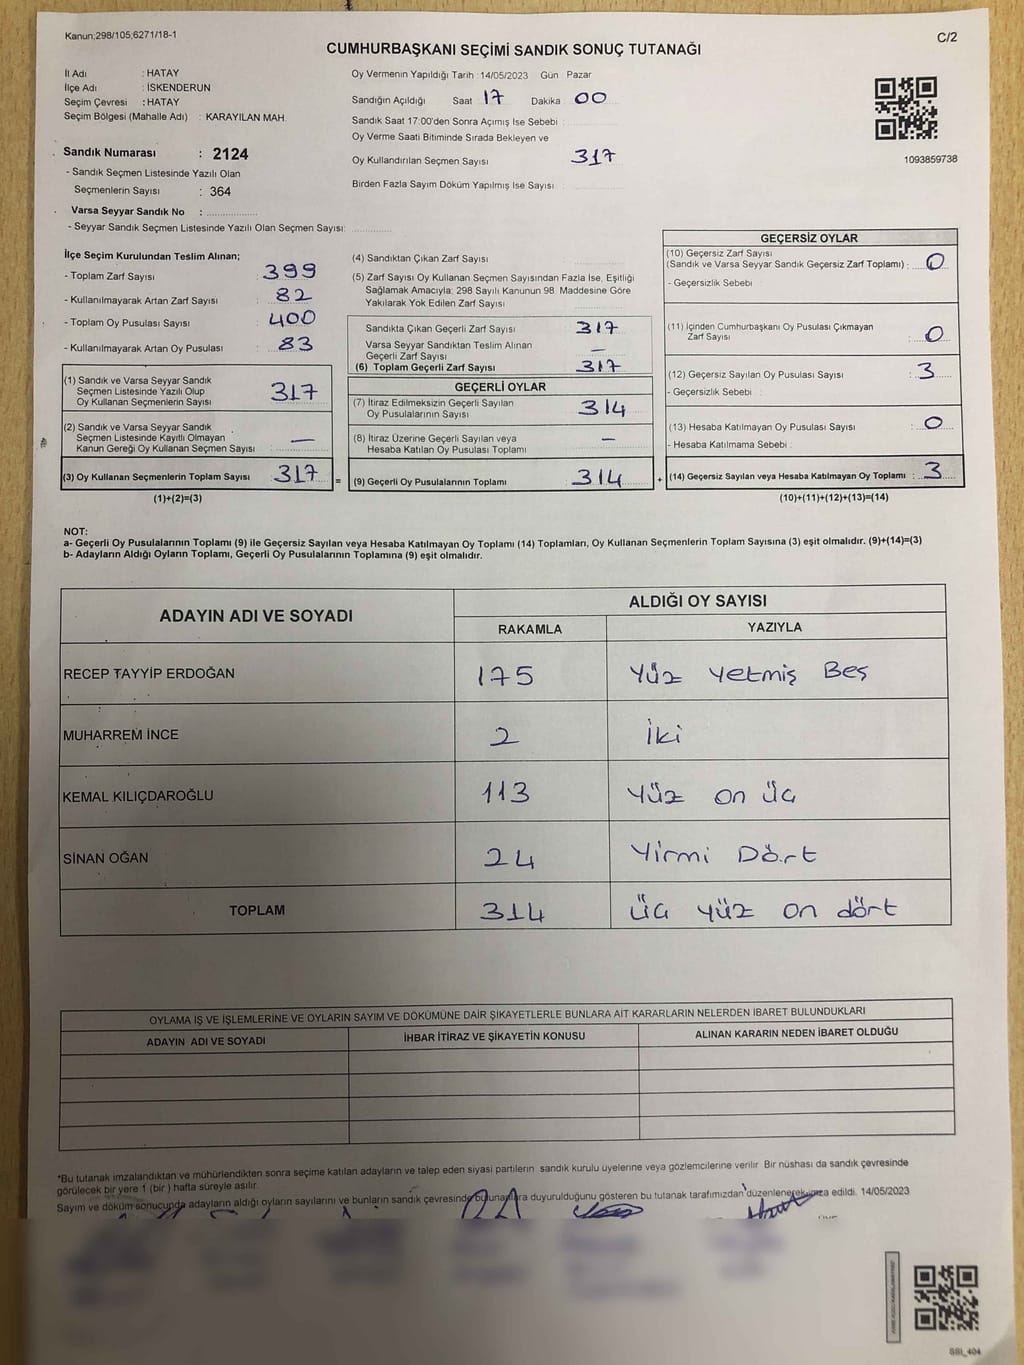 Kanun;298/105,6271/18-1
C/2
CUMHURBAŞKANI SEÇİMİ SANDIK SONUÇ TUTANAĞI
İl Adı : HATAY
İlçe Adı : İSKENDERUN
Seçim Çevresi : HATAY
Seçim Bölgesi (Mahalle Adı) : KARAYILAN MAH.
Sandık Numarası : 2124
- Sandık Seçmen Listesinde Yazılı Olan
Seçmenlerin Sayısı : 364
Varsa Seyyar Sandık No :
- Seyyar Sandık Seçmen Listesinde Yazılı Olan Seçmen Sayısı:
Oy Vermenin Yapıldığı Tarih : 14/05/2023 Gün Pazar
Sandığın Açıldığı Saat 17 Dakika 00
Sandık Saat 17:00'den Sonra Açımış İse Sebebi :
Oy Verme Saati Bitiminde Sırada Bekleyen ve
Oy Kullandırılan Seçmen Sayısı 317
Birden Fazla Sayım Döküm Yapılmış İse Sayısı
1093859738
İlçe Seçim Kurulundan Teslim Alınan;
- Toplam Zarf Sayısı : 399
- Kullanılmayarak Artan Zarf Sayısı : 82
- Toplam Oy Pusulası Sayısı : 400
- Kullanılmayarak Artan Oy Pusulası : 83
(1) Sandık ve Varsa Seyyar Sandık
Seçmen Listesinde Yazılı Olup
Oy Kullanan Seçmenlerin Sayısı 317
(2) Sandık ve Varsa Seyyar Sandık
Seçmen Listesinde Kayıtlı Olmayan
Kanun Gereği Oy Kullanan Seçmen Sayısı —
(3) Oy Kullanan Seçmenlerin Toplam Sayısı 317
(1)+(2)=(3)
=
(4) Sandıktan Çıkan Zarf Sayısı
(5) Zarf Sayısı Oy Kullanan Seçmen Sayısından Fazla İse, Eşitliği
Sağlamak Amacıyla; 298 Sayılı Kanunun 98. Maddesine Göre
Yakılarak Yok Edilen Zarf Sayısı
Sandıkta Çıkan Geçerli Zarf Sayısı 317
Varsa Seyyar Sandıktan Teslim Alınan
Geçerli Zarf Sayısı —
(6) Toplam Geçerli Zarf Sayısı 317
GEÇERLİ OYLAR
(7) İtiraz Edilmeksizin Geçerli Sayılan
Oy Pusulalarının Sayısı 314
(8) İtiraz Üzerine Geçerli Sayılan veya
Hesaba Katılan Oy Pusulası Toplamı —
(9) Geçerli Oy Pusulalarının Toplamı 314
+
GEÇERSİZ OYLAR
(10) Geçersiz Zarf Sayısı
(Sandık ve Varsa Seyyar Sandık Geçersiz Zarf Toplamı) : 0
- Geçersizlik Sebebi
(11) İçinden Cumhurbaşkanı Oy Pusulası Çıkmayan
Zarf Sayısı : 0
(12) Geçersiz Sayılan Oy Pusulası Sayısı : 3
- Geçersizlik Sebebi :
(13) Hesaba Katılmayan Oy Pusulası Sayısı : 0
- Hesaba Katılmama Sebebi :
(14) Geçersiz Sayılan veya Hesaba Katılmayan Oy Toplamı : 3
(10)+(11)+(12)+(13)=(14)
NOT:
a- Geçerli Oy Pusulalarının Toplamı (9) ile Geçersiz Sayılan veya Hesaba Katılmayan Oy Toplamı (14) Toplamları, Oy Kullanan Seçmenlerin Toplam Sayısına (3) eşit olmalıdır. (9)+(14)=(3)
b- Adayların Aldığı Oyların Toplamı, Geçerli Oy Pusulalarının Toplamına (9) eşit olmalıdır.
ADAYIN ADI VE SOYADI
ALDIĞI OY SAYISI
RAKAMLA YAZIYLA
RECEP TAYYİP ERDOĞAN 175 Yüz Yetmiş Beş
MUHARREM İNCE 2 İki
KEMAL KILIÇDAROĞLU 113 Yüz on üç
SİNAN OĞAN 24 Yirmi Dört
TOPLAM 314 Üç yüz on dört
OYLAMA İŞ VE İŞLEMLERİNE VE OYLARIN SAYIM VE DÖKÜMÜNE DAİR ŞİKAYETLERLE BUNLARA AİT KARARLARIN NELERDEN İBARET BULUNDUKLARI
ADAYIN ADI VE SOYADI İHBAR İTİRAZ VE ŞİKAYETİN KONUSU ALINAN KARARIN NEDEN İBARET OLDUĞU
*Bu tutanak imzalandıktan ve mühürlendikten sonra seçime katılan adayların ve talep eden siyasi partilerin sandık kurulu üyelerine veya gözlemcilerine verilir. Bir nüshası da sandık çevresinde
görülecek bir yere 1 (bir ) hafta süreyle asılır.
Sayım ve döküm sonucunda adayların aldığı oyların sayılarını ve bunların sandık çevresinde bulunanlara duyurulduğunu gösteren bu tutanak tarafımızdan düzenlenerek imza edildi. 14/05/2023
SSI_404